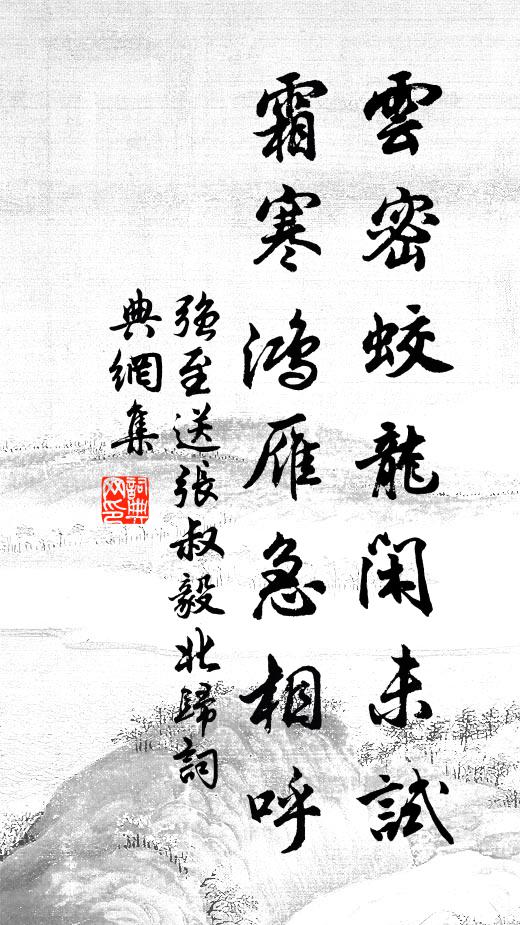 雲密蛟龍閑未試
霜寒鴻雁急相呼
強至送張叔毅北歸詞
典網集
詞典網印